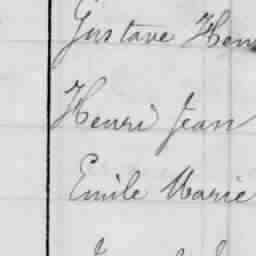 Gustave Hen
Henri Jean
Emile Marie